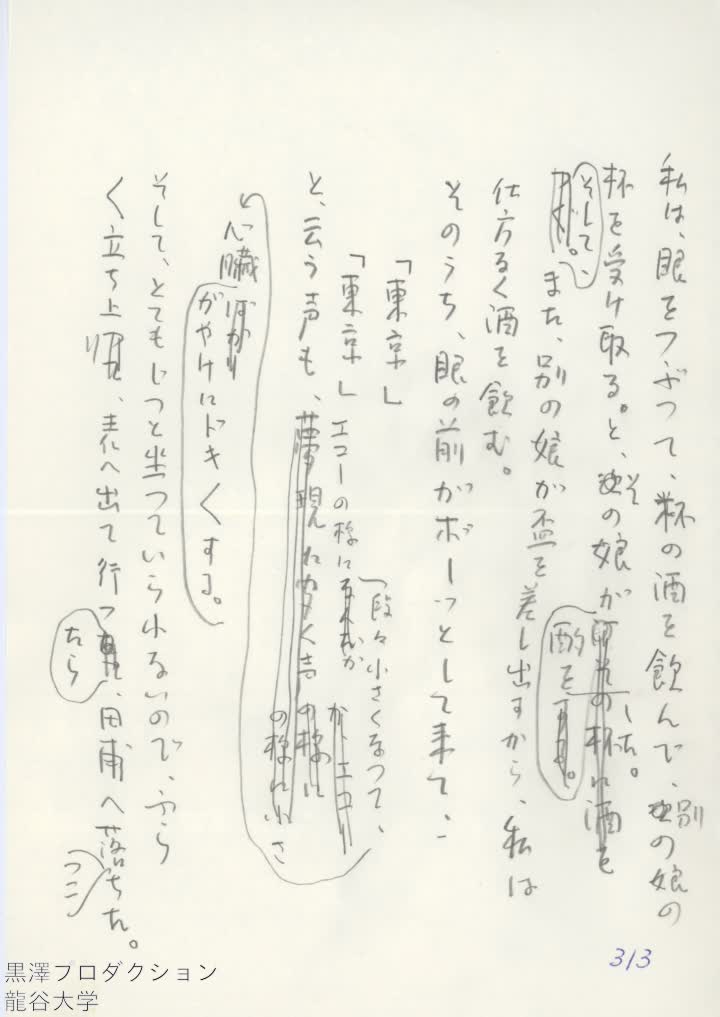 私は、眼をつぶつて、杯の酒を飲んで、別の娘の
杯を受け取る。と、その娘が酌をした。
そして、また、別の娘が盃を差し出すから、私は
仕方なく酒を飲む。
そのうち、眼の前がボーつとして来て、
「東京」
「東京」エコーの様に
と、云う声も、段々小さくなつて、
心臓ばかり
がやけにドキ〱する。
そして、とてもじつと坐つていられないので、ふら
く立ち上り、表へ出て行つたら、田甫へ落つこちた。
313
黒澤プロダクション
龍谷大学